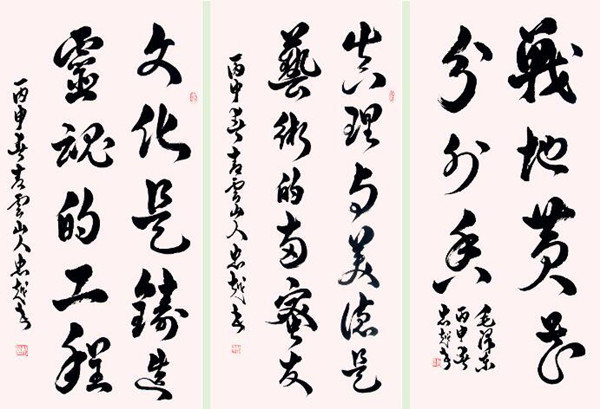 戰地黃花
分外香
毛澤東
丙申春
忠越書
真理与美德是
藝術的兩蜜友
丙申春青雲山人忠越書
文化是鑄造
靈魂的工程
丙申春青雲山人忠越書